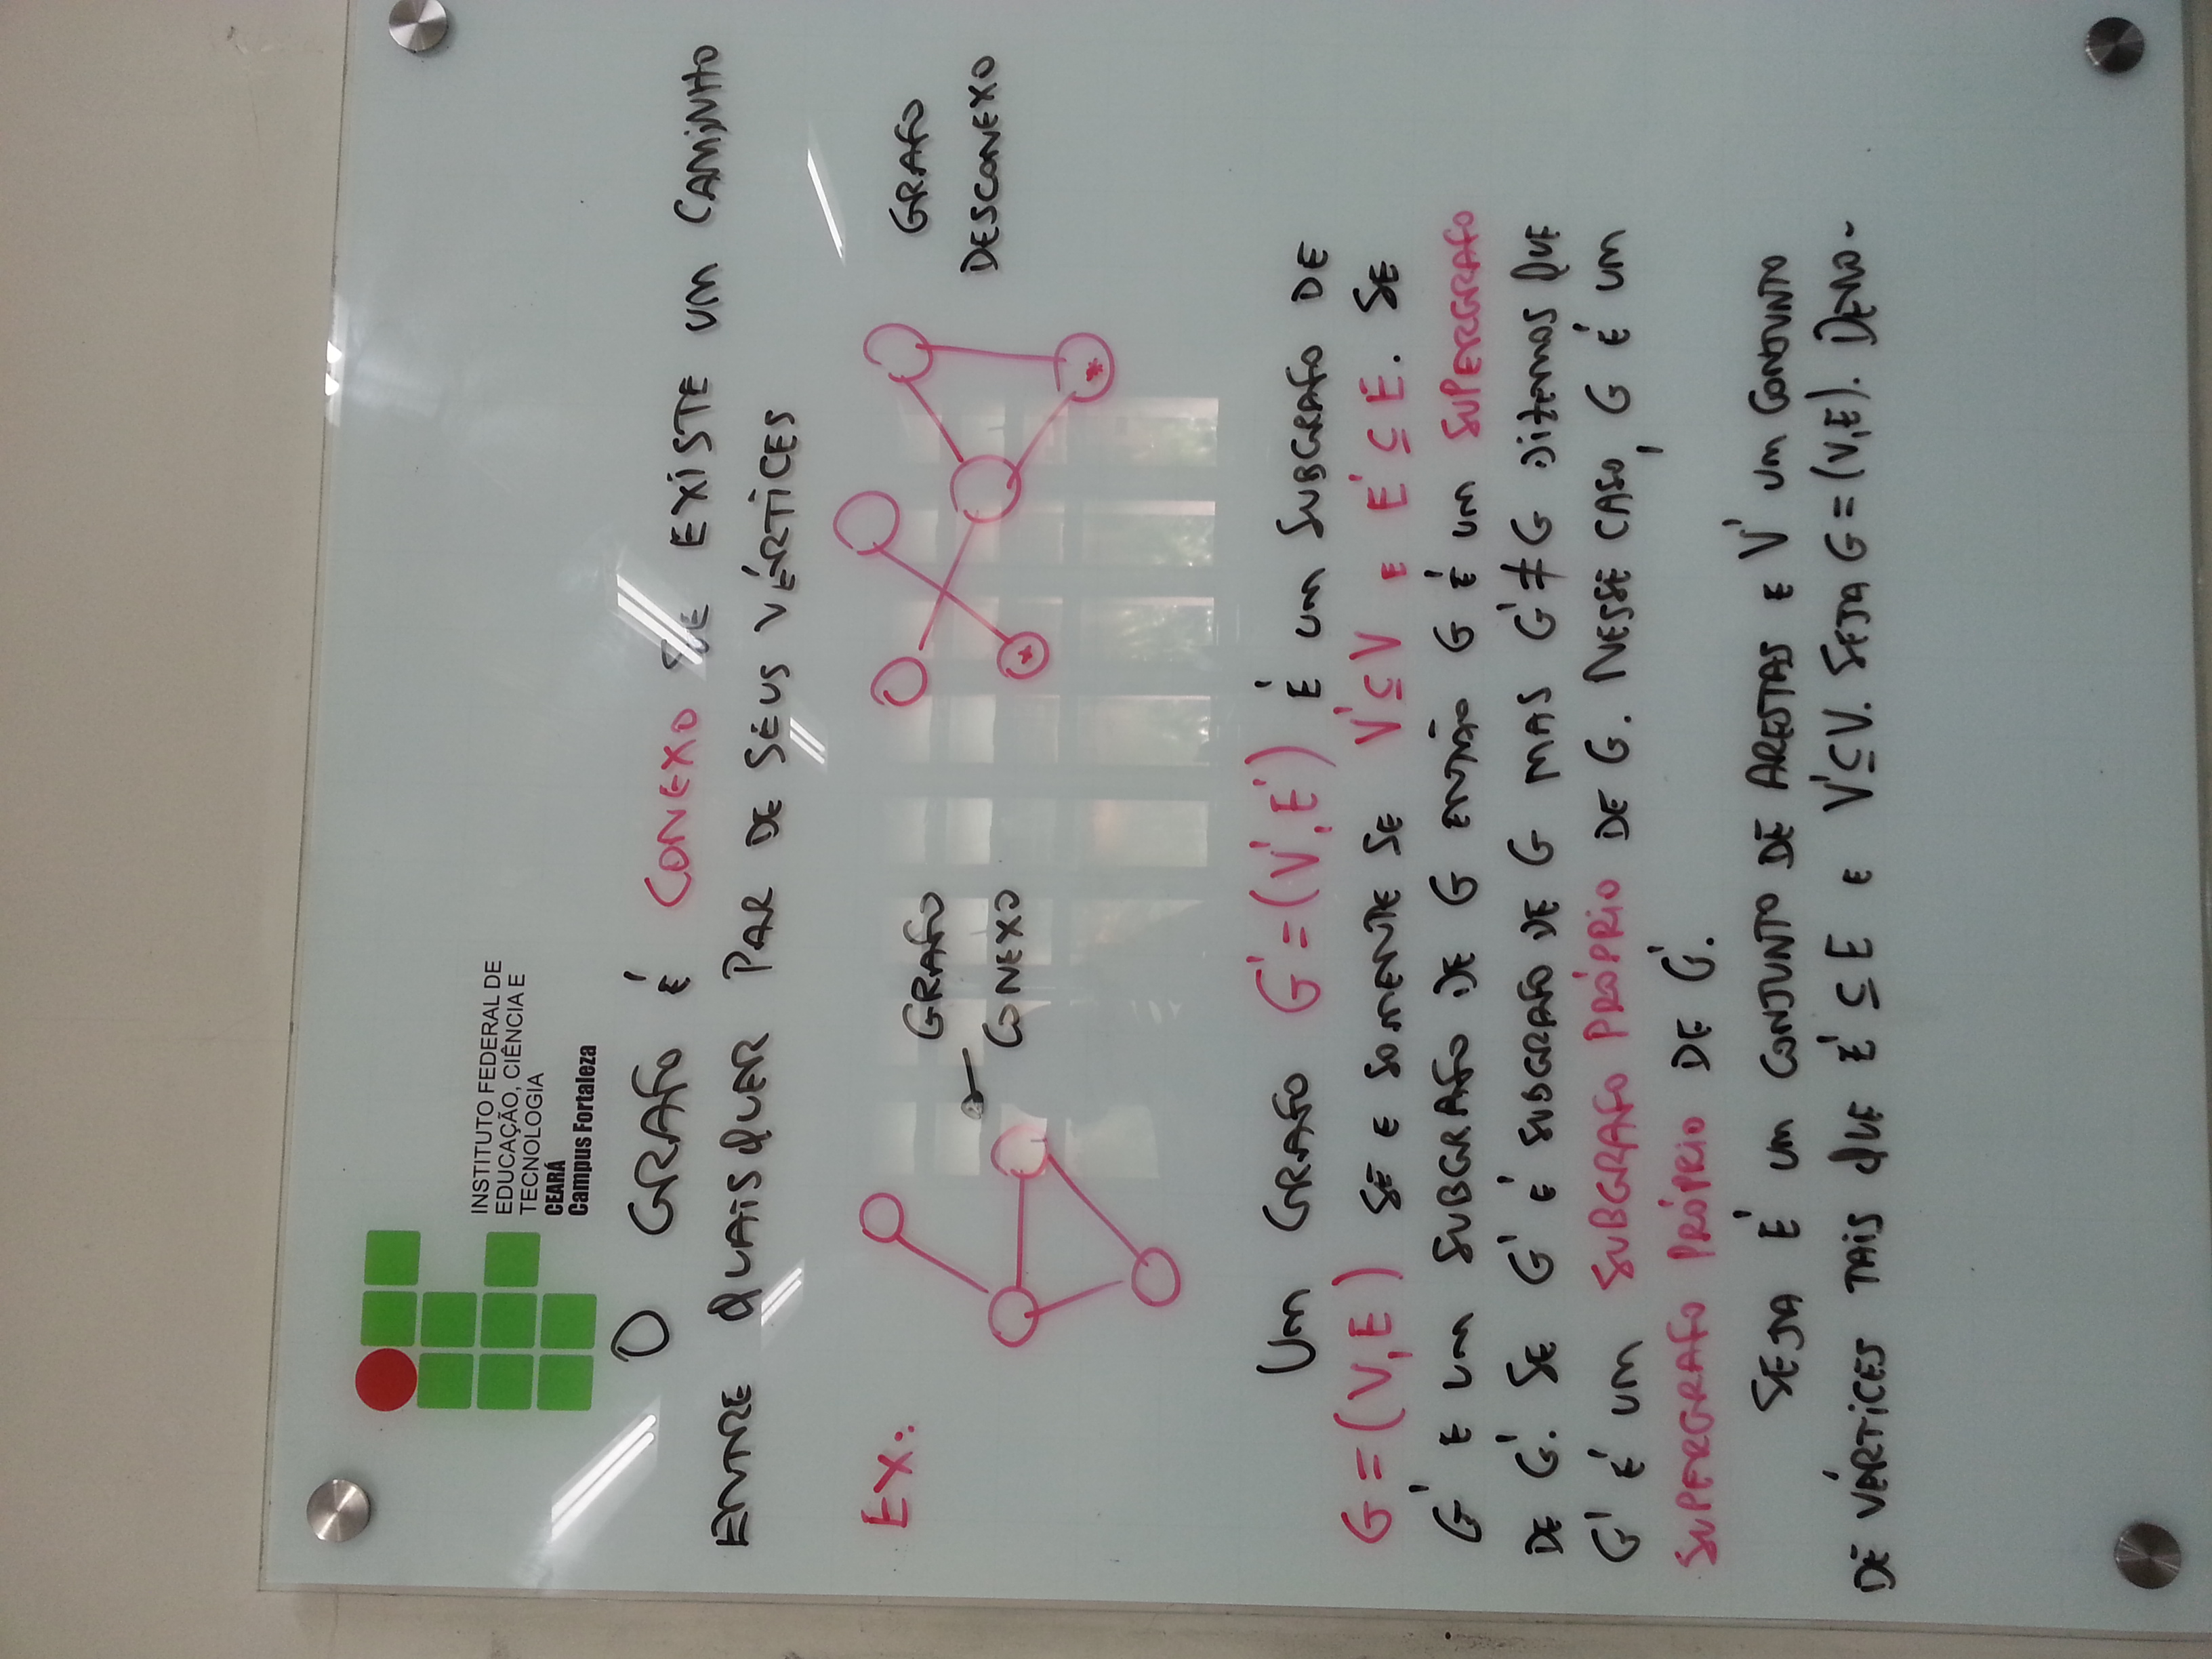 INSTITUTO FEDERAL DE
EDUCAÇÃO, CIÊNCIA E
TECNOLOGIA
CEARÁ
Campus Fortaleza
O GRAFO É CONEXO SE EXISTE UM CAMINHO
ENTRE QUAISQUER PAR DE SEUS VÉRTICES
EX:
GRAFO
CONEXO
GRAFO
DESCONEXO
UM GRAFO G'=(V',E') É UM SUBGRAFO DE
G=(V,E) SE E SOMENTE SE V'⊆V E E'⊆E. SE
G' E UM SUBGRAFO DE G ENTÃO G É UM SUPERGRAFO
DE G'. SE G' É SUBGRAFO DE G MAS G'≠G DIZEMOS QUE
G' É UM SUBGRAFO PRÓPRIO DE G. NESSE CASO, G É UM
SUPERGRAFO PRÓPRIO DE G'.
SEJA E' UM CONJUNTO DE ARESTAS E V' UM CONJUNTO
DE VÉRTICES TAIS QUE E'⊆E E V'⊆V. SEJA G=(V,E). DENO-